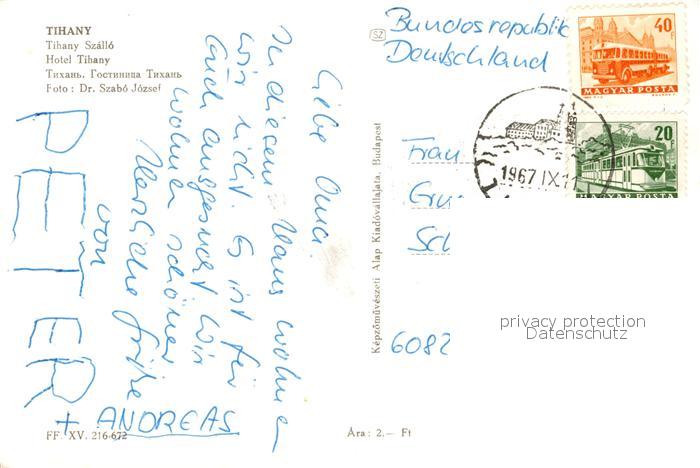 TIHANY
Tihany Szálló
Hotel Tihany
Тихань. Гостиница Тихань
Foto : Dr. Szabó József
Liebe Oma.
In diesem Haus wohnen
wir nicht. Es ist für
Euch ausgesucht. Wir
wohnen schöner.
Herzliche Grüße
von
PETER
+ ANDREAS
FF. XV. 216-672
Ára : 2.— Ft
Képzőművészeti Alap Kiadóvállalata, Budapest
SZ
Bundesrepublik
Deutschland
Frau
Gru
Sch
6082
40 f
MAGYAR POSTA
20 f
MAGYAR POSTA
1967 IX.
privacy protection
Datenschutz